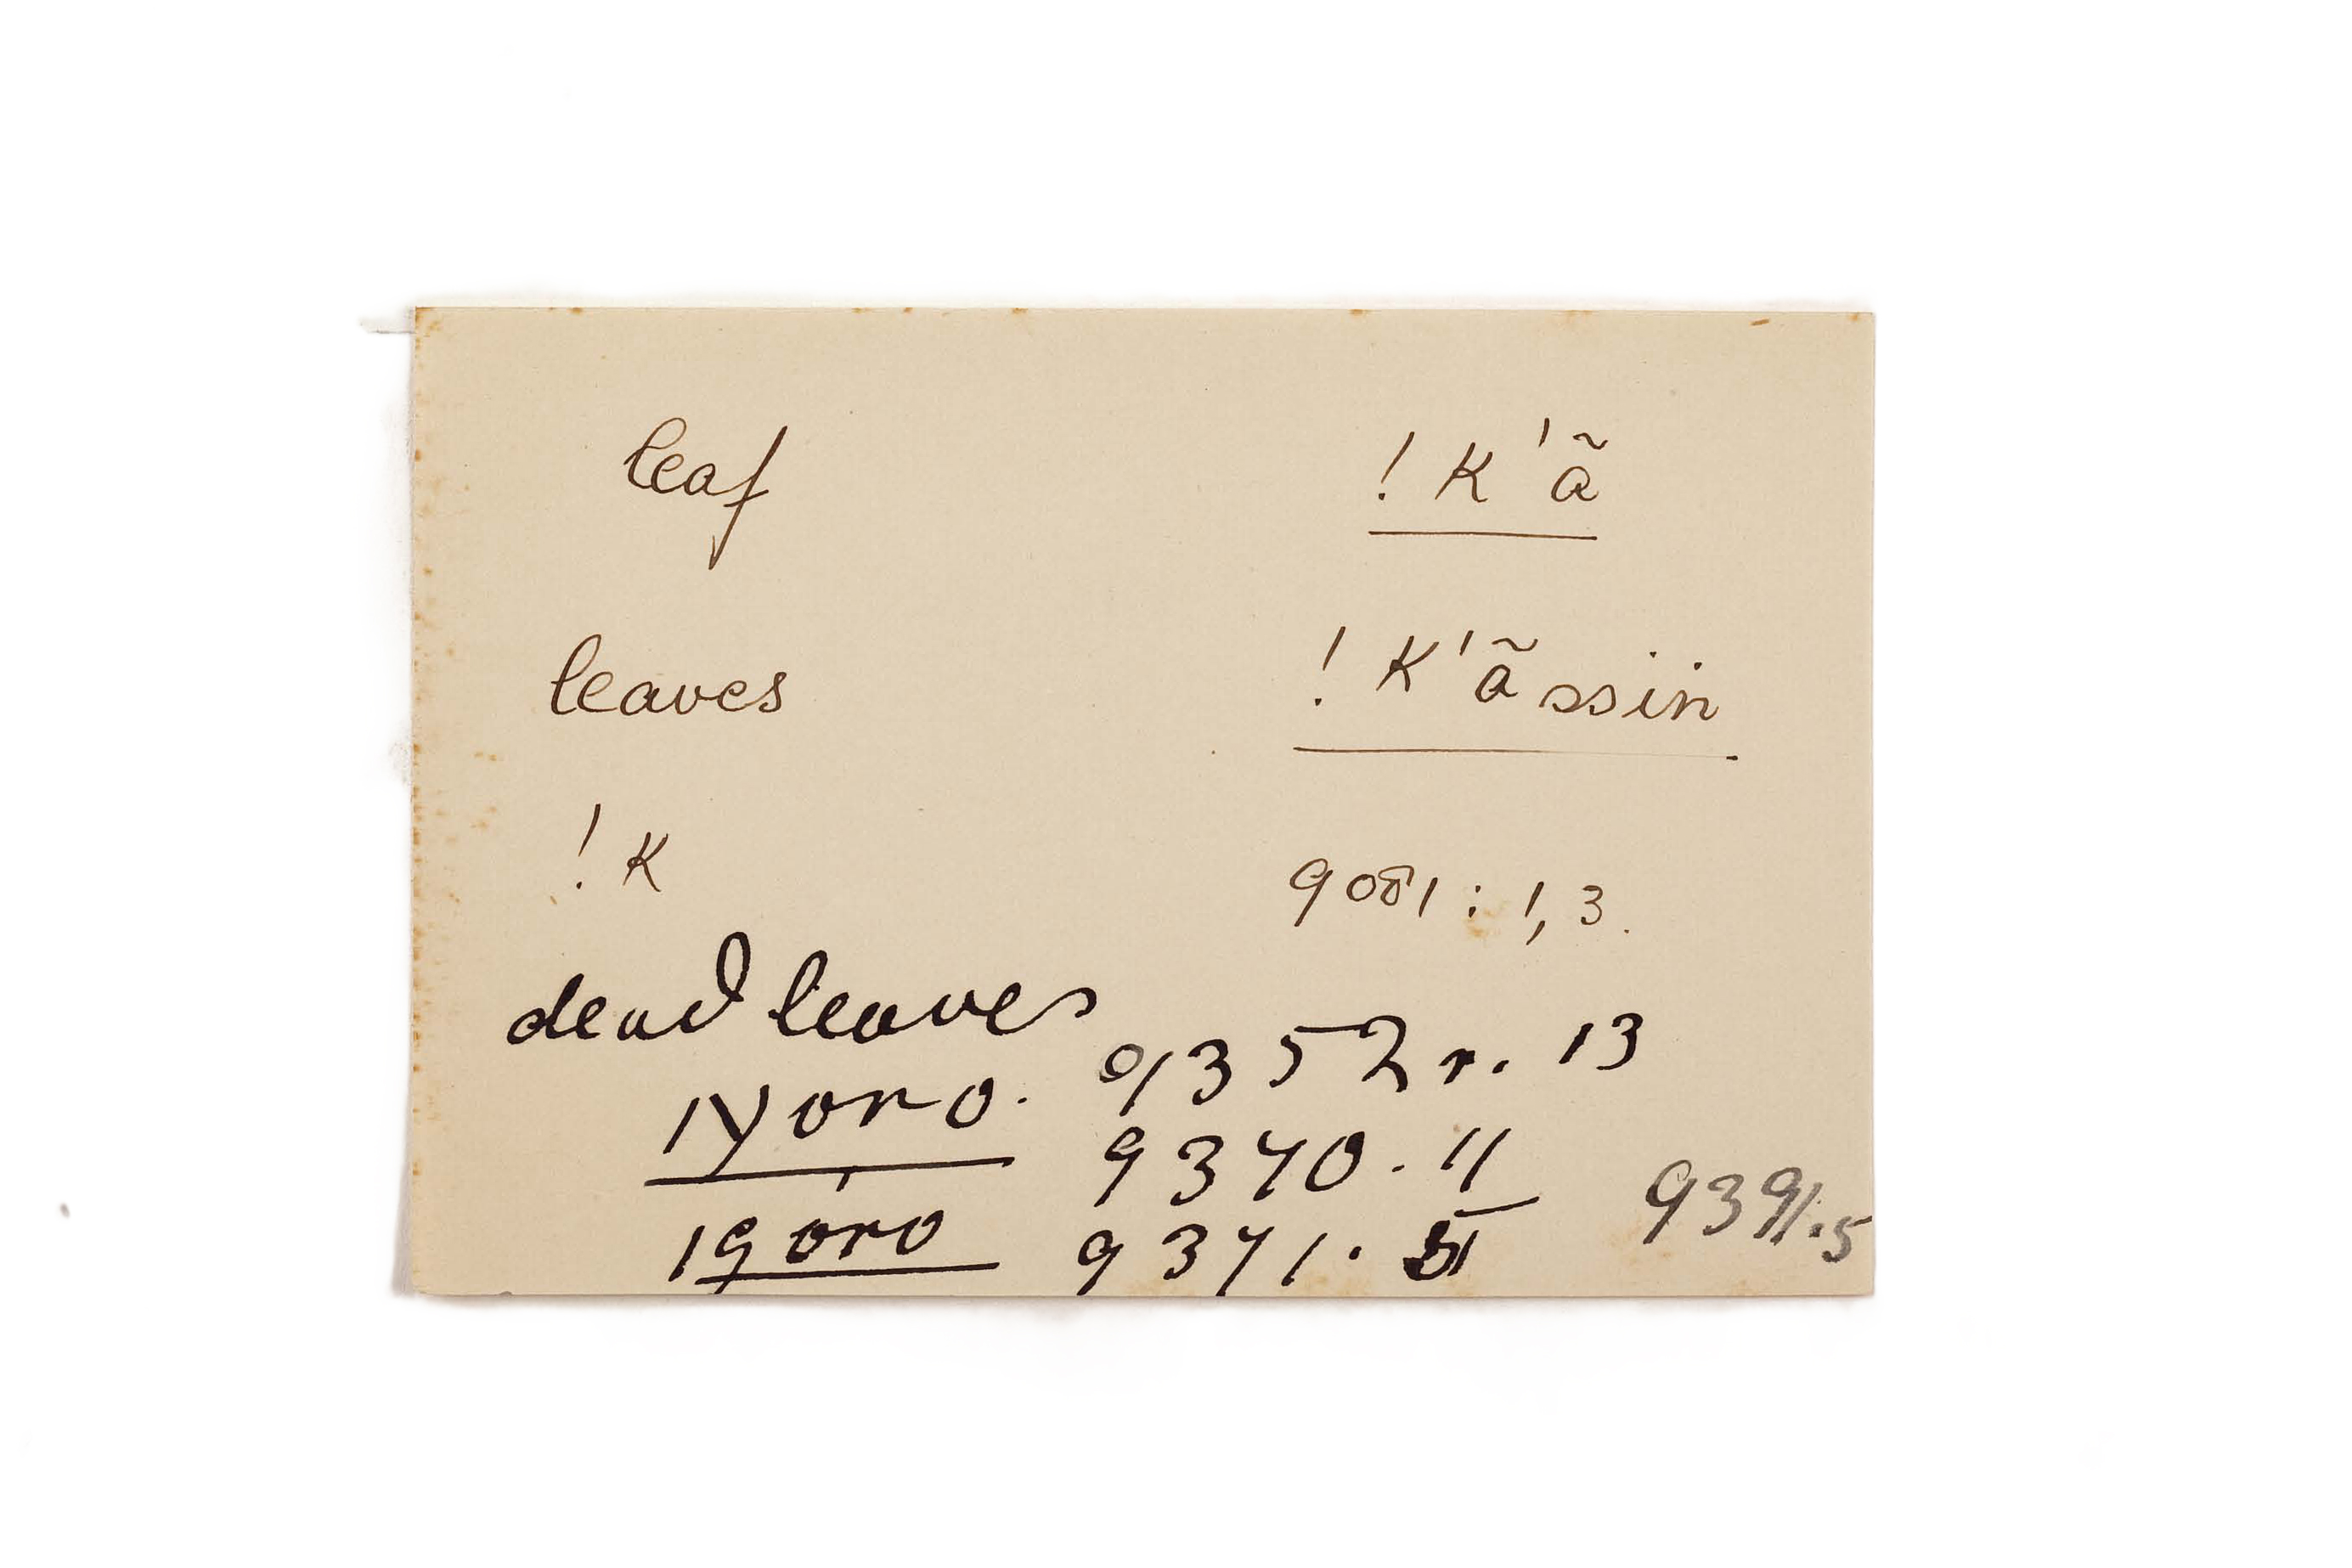 leaf !K'ã
leaves !K'ãssin
!K 9081 : 1, 3.
dead leaves
|goro. 9352 r. 13
9370. 11
|góro 9371.
9391.5